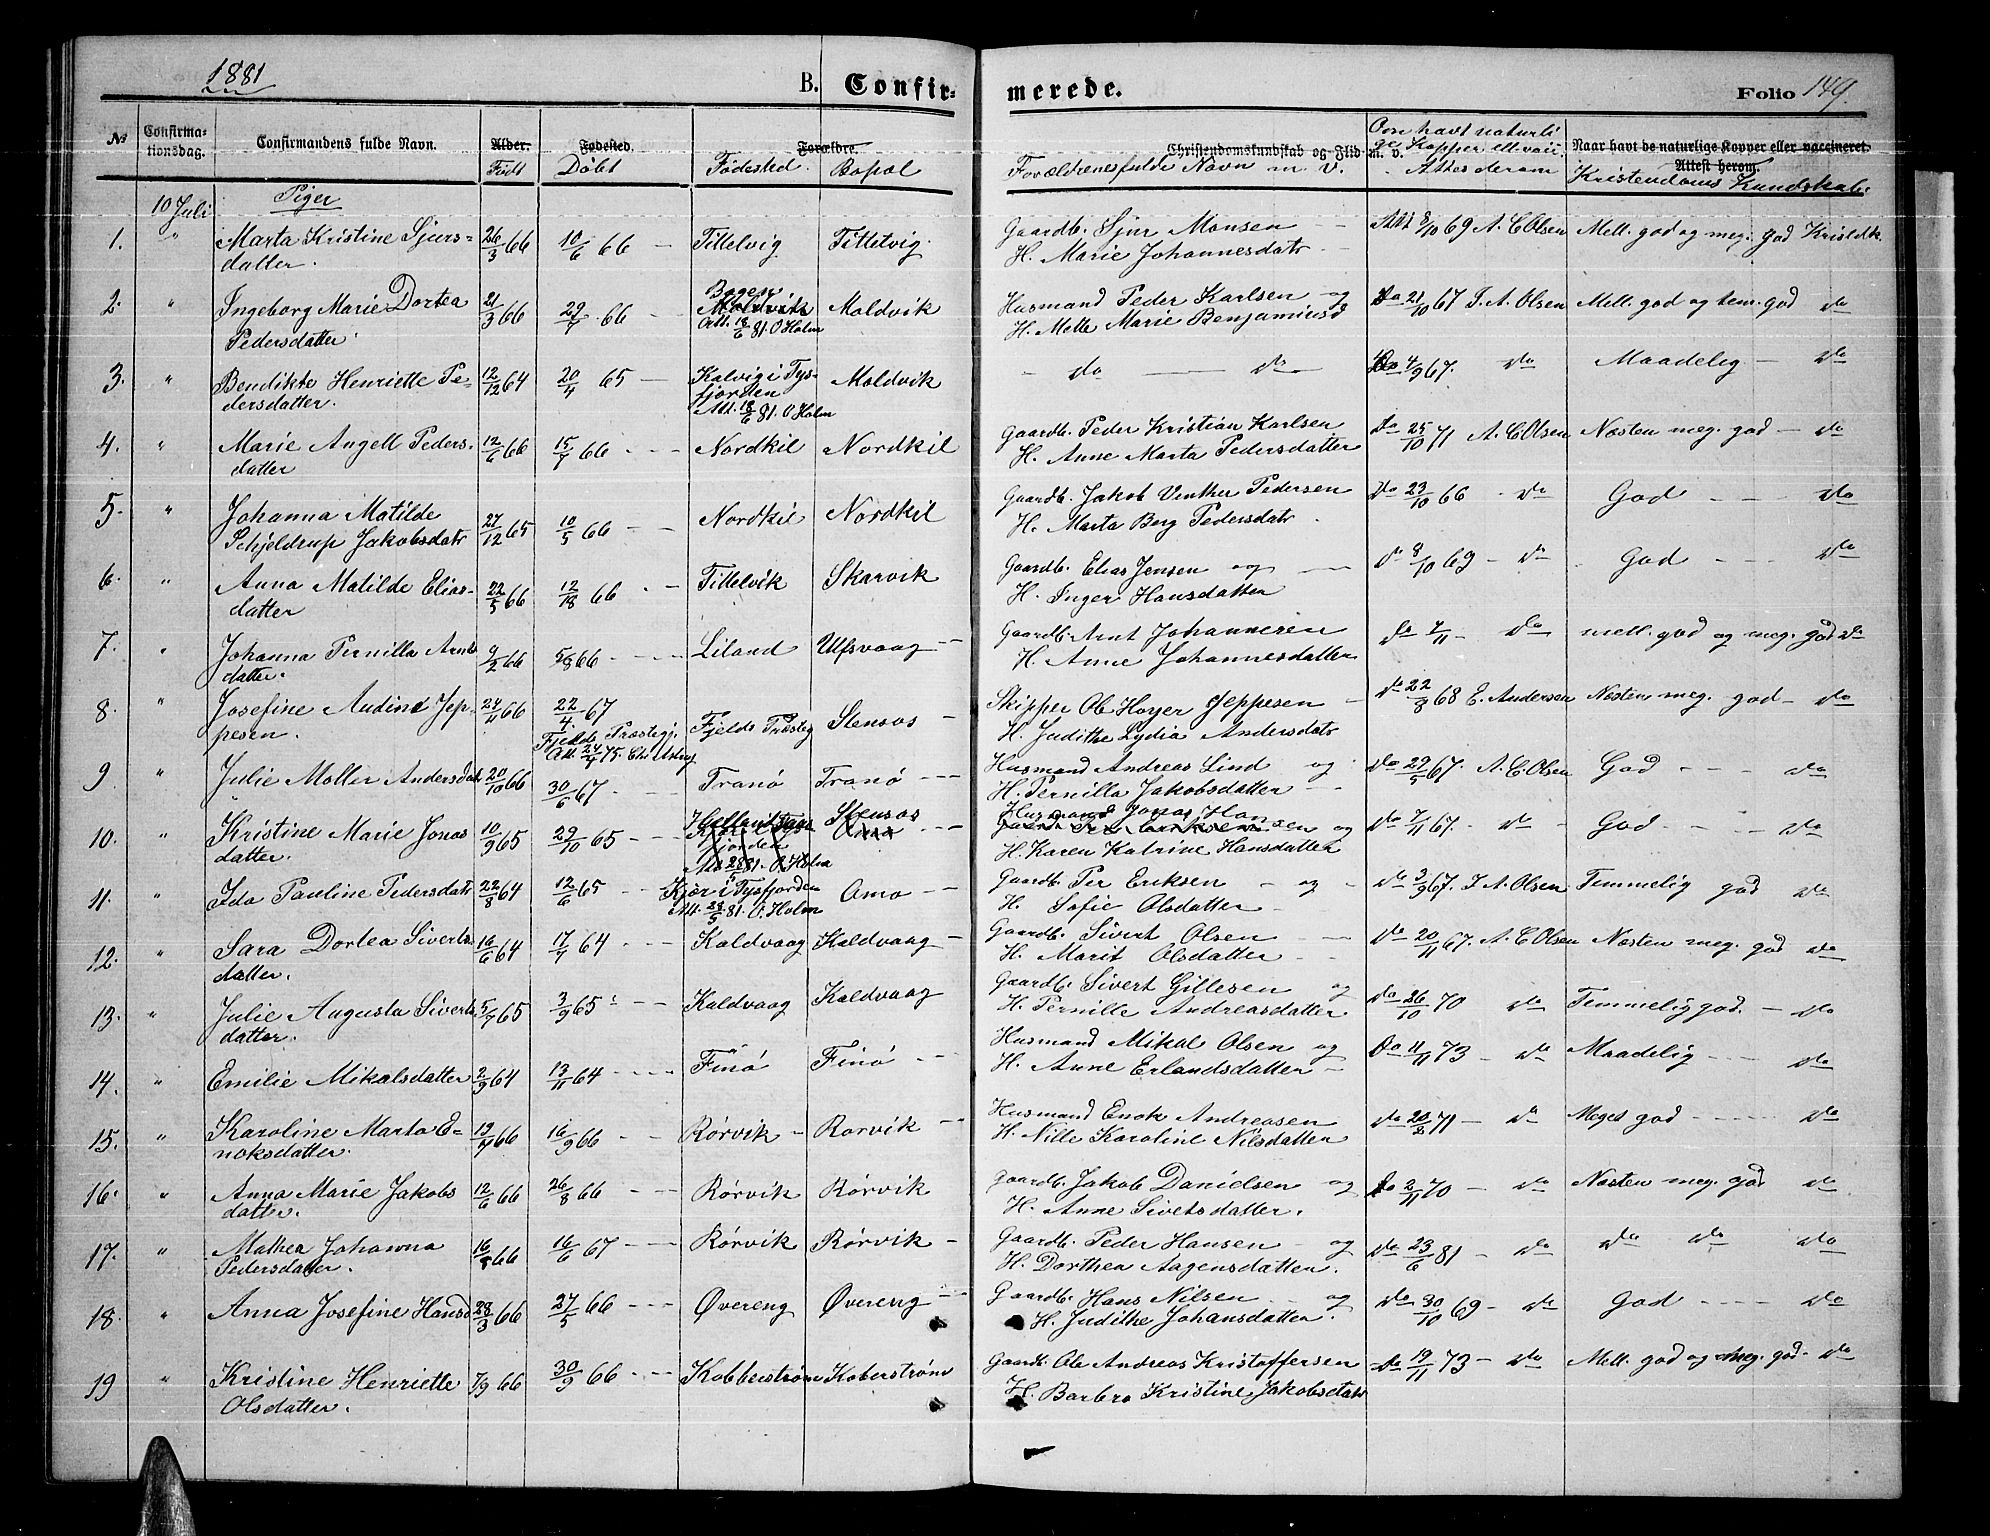 1881
B. Confir-
merede.
Folio 149.
No
Confirma-
tionsdag.
Confirmandens fulde Navn.
Alder.
Født
Fødested.
Døbt
Forældre.
Fødested. Bopæl
Christendomskundskab og Flid m. v.
Forældrenes fulde Navn m. V.
Om havt naturli
ge Kopper ell. vacc.
Attest derom
Naar havt de naturlige Kopper eller vaccineret
Attest herom.
Kristendoms Kundskab.
10 Juli Piger
1. " Marta Kristine Sjurs-
datter. 26/3 66 10/6 66 — Tittelvig Tittelvig.
Gaardb. Sjur Monsen
H. Marie Johannesdatr
Att 8/10 69 A. C Olsen Mell. god og meg. God Kristdk.
2. " Ingeborg Marie Dortea
Pedersdatter. 21/3 66 29/7 66 — Bogen
Moldvik
Att. 18/6 81. O Holm Moldvik
Husmand Peder Karlsen og
H. Mette Marie Benjaminsd
Do 21/10 67 J. A. Olsen Mell. god og tem. god do
3. " Bendikte Henriette Pe-
dersdatter. 12/12 64 20/4 65 — Kalvig i Tys-
fjorden
Att. 18/6 81. O Holm Moldvik
do do
Do 4/9 67. do Maadelig — do
4. " Marie Angell Peders-
datter 12/6 66 15/7 66 Nordkil Nordkil
Gaardb. Peder Kristian Karlsen
H. Anne Marta Pedersdatter
Do 25/10 71 A. C Olsen Næsten meg. god — do
5. " Johanna Matilde
Schjeldrup Jakobsdatr 27/12 65 10/5 66 Nordkil Nordkil
Gaardb. Jakob Vinther Pedersen
H. Marta Berg Pedersdatr.
Do 23/10 66 do God do
6. " Anna Matilde Elias-
datter 22/5 66 12/18 66 Tittelvik Skarvik
Gaardb. Elias Jensen og
H. Inger Hansdatter
do 8/10 69 — do God do
7. " Johanna Pernilla Arnts
datter. 9/2 66 5/8 66 Liland Ulfsvaag
Gaardb. Arnt Johannesen
H. Anne Johannesdatter
do 7/11 — do mell. god og meg. god do
8. " Josefine Andine Jep-
pesen. 24/11 66 22/4 67
Fjelds Præstegj.
Att. 24/4 75. Fjelds Præsteg Stensos
Skipper Ole Hoyer Jeppesen
H. Judithe Lydia Andersdatr
do 22/8 68 E. Andersen Næsten meg. god — do
9 " Julie Moller Andersdatr 20/10 66 30/6 67. Tranø Tranø
Husmand Andreas Lind og
H. Pernilla Jakobsdatter
do 29/5 67. A. C. Olsen God do
10. " Kristine Marie Jonas
datter. 10/9 65 29/10 65 Helland Tys
fjorden
Att 28/5 81. O Holm Stensos
Husmand Jonas Han
sen og
H. Karen Katrine Hansdatter
do 7/11 67. do God do
11. " Ida Pauline Pedersdatr 22/8 64 12/6 65 Kjær i Tysfjorden
Att. 28/5 81. O. Holm Amo
Gaardb. Per Eriksen og
H. Sofie Olsdatter
do 3/9 67. J. A. Olsen Temmelig god do
12. " Sara Dortea Siverts
datter. 16/6 64 17/7 64 Kaldvaag Kaldvaag
Gaardb. Sivert Olsen
H. Marit Olsdatter
do 20/11 67. A. C Olsen Næsten meg. god do
13. " Julie Augusta Siverts
datter. 5/7 65 3/9 65 Kaldvaag Kaldvaag
Gaardb. Sivert Gillesen og
H. Pernille Andreasdatter
do 26/10 70 do Temmelig god. — do
14. " Emilie Mikalsdatter 2/9 64 13/11 64 Finø Finø
Husmand Mikal Olsen og
H. Anne Erlandsdatter
Do 11/11 73 — do Maadelig do
15. " Karoline Marta E-
noksdatter. 19/7 66 16/9 66 Rørvik — Rørvik
Husmand Enok Andreasen
H. Nille Karoline Nilsdatter
do 20/8 71 — do Meget god do
16. " Anna Marie Jakobs
datter. 12/6 66 26/8 66 Rørvik Rørvik
Gaardb. Jakob Danielsen og
H. Anne Sivertsdatter.
do 2/11 70 do Næsten meg. god do
17. " Mathea Johanna
Pedersdatter. 16/8 66 16/6 67 Rørvik Rørvik
Gaardb. Peder Hansen og
H. Dorthea Aagensdatter.
do 23/6 81 — do do do do
18. " Anna Josefine Hansd 28/3 66 27/5 66 Øvereng Øvereng
Gaardb. Hans Nilsen og
H. Judithe Johansdatter.
do 30/10 69 — do God do
19 " Kristine Henriette
Olsdatter. 7/9 66 30/9 66 Kobberstrøm Koberstrøm
Gaardb. Ole Andreas Kristoffersen
H. Barbro Kristine Jakobsdatr
do 19/11 73 — do Mell. god og meg. god. do